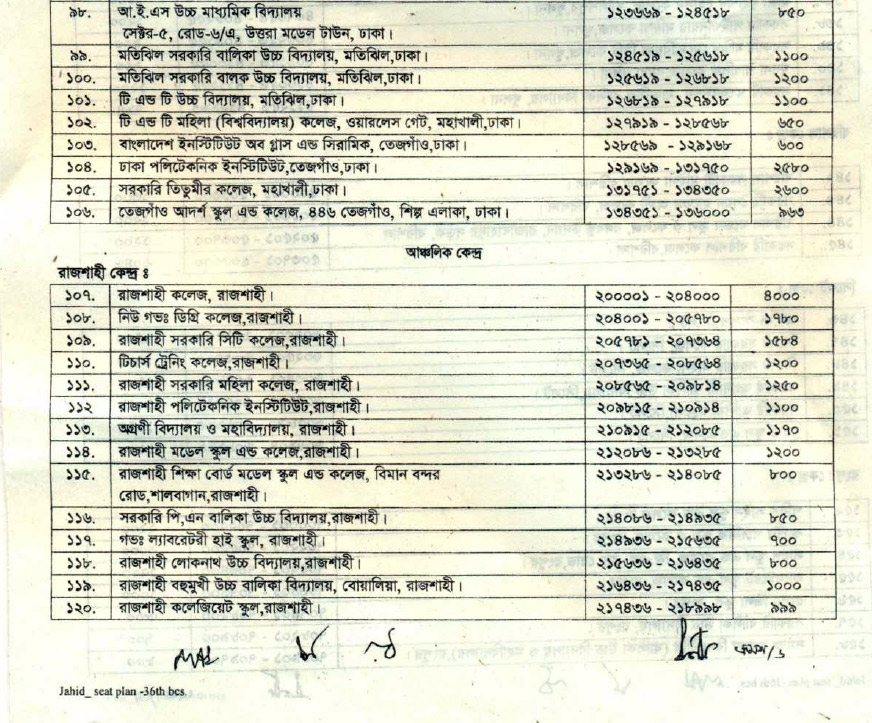 ৯৮. আ.ই.এস উচ্চ মাধ্যমিক বিদ্যালয় ১২৩৬৬৯ - ১২৪৫১৮ ৮৫০
সেক্টর-৫, রোড-৬/এ, উত্তরা মডেল টাউন, ঢাকা।
৯৯. মতিঝিল সরকারি বালিকা উচ্চ বিদ্যালয়, মতিঝিল,ঢাকা। ১২৪৫১৯ - ১২৫৬১৮ ১১০০
১০০. মতিঝিল সরকারি বালক উচ্চ বিদ্যালয়, মতিঝিল,ঢাকা। ১২৫৬১৯ - ১২৬৮১৮ ১২০০
১০১. টি এন্ড টি উচ্চ বিদ্যালয়, মতিঝিল,ঢাকা। ১২৬৮১৯ - ১২৭৯১৮ ১১০০
১০২. টি এন্ড টি মহিলা (বিশ্ববিদ্যালয়) কলেজ, ওয়ারলেস গেট, মহাখালী,ঢাকা। ১২৭৯১৯ - ১২৮৫৬৮ ৬৫০
১০৩. বাংলাদেশ ইনস্টিটিউট অব গ্লাস এন্ড সিরামিক, তেজগাঁও,ঢাকা। ১২৮৫৬৯ - ১২৯১৬৮ ৬০০
১০৪. ঢাকা পলিটেকনিক ইনস্টিটিউট,তেজগাঁও,ঢাকা। ১২৯১৬৯ - ১৩১৭৫০ ২৫৮০
১০৫. সরকারি তিতুমীর কলেজ, মহাখালী,ঢাকা। ১৩১৭৫১ - ১৩৪৩৫০ ২৬০০
১০৬. তেজগাঁও আদর্শ স্কুল এন্ড কলেজ, ৪৪৬ তেজগাঁও, শিল্প এলাকা, ঢাকা। ১৩৪৩৫১ - ১৩৬০০০ ৯৬৩
আঞ্চলিক কেন্দ্র
রাজশাহী কেন্দ্র ঃ
১০৭. রাজশাহী কলেজ, রাজশাহী। ২০০০০১ - ২০৪০০০ ৪০০০
১০৮. নিউ গভঃ ডিগ্রি কলেজ,রাজশাহী। ২০৪০০১ - ২০৫৭৮০ ১৭৮০
১০৯. রাজশাহী সরকারি সিটি কলেজ,রাজশাহী। ২০৫৭৮১ - ২০৭৩৬৪ ১৫৮৪
১১০. টিচার্স ট্রেনিং কলেজ,রাজশাহী। ২০৭৩৬৫ - ২০৮৫৬৪ ১২০০
১১১. রাজশাহী সরকারি মহিলা কলেজ, রাজশাহী। ২০৮৫৬৫ - ২০৯৮১৪ ১২৫০
১১২ রাজশাহী পলিটেকনিক ইনস্টিটিউট,রাজশাহী। ২০৯৮১৫ - ২১০৯১৪ ১১০০
১১৩. অগ্রণী বিদ্যালয় ও মহাবিদ্যালয়, রাজশাহী। ২১০৯১৫ - ২১২০৮৫ ১১৭০
১১৪. রাজশাহী মডেল স্কুল এন্ড কলেজ,রাজশাহী। ২১২০৮৬ - ২১৩২৮৫ ১২০০
১১৫. রাজশাহী শিক্ষা বোর্ড মডেল স্কুল এন্ড কলেজ, বিমান বন্দর ২১৩২৮৬ - ২১৪০৮৫ ৮০০
রোড,শালবাগান,রাজশাহী।
১১৬. সরকারি পি,এন বালিকা উচ্চ বিদ্যালয়,রাজশাহী। ২১৪০৮৬ - ২১৪৯৩৫ ৮৫০
১১৭. গভঃ ল্যাবরেটরী হাই স্কুল, রাজশাহী। ২১৪৯৩৬ - ২১৫৬৩৫ ৭০০
১১৮. রাজশাহী লোকনাথ উচ্চ বিদ্যালয়,রাজশাহী। ২১৫৬৩৬ - ২১৬৪৩৫ ৮০০
১১৯. রাজশাহী বহুমুখী উচ্চ বালিকা বিদ্যালয়, বোয়ালিয়া, রাজশাহী। ২১৬৪৩৬ - ২১৭৪৩৫ ১০০০
১২০. রাজশাহী কলেজিয়েট স্কুল,রাজশাহী। ২১৭৪৩৬ - ২১৮৯৯৮ ৯৯৯
Jahid_ seat plan -36th bcs.